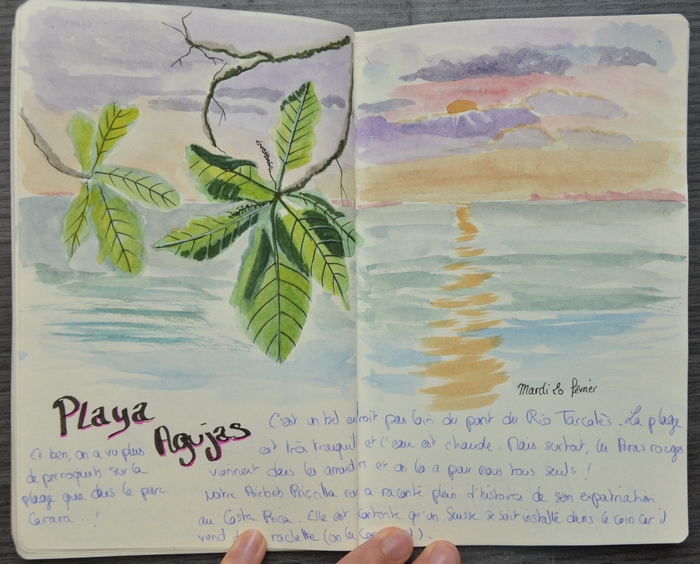 Mardi 20 février
Playa
Agujas
Et ben, on a vu plus
de perroquets sur la
plage que dans le parc
Carara ..!
C'est un bel endroit pas loin du pont du Rio Tarcolès. La plage
est très tranquil et l'eau est chaude. Mais surtout, les Aras rouges
viennent dans les amandiers et on les a pour nous tous seuls !
Notre Airbnb Priscilla nous a raconté plein d'histoires de son expatriation
au Costa Rica. Elle est contente qu'un Suisse se soit installé dans le coin car il
vend de la raclette (on la